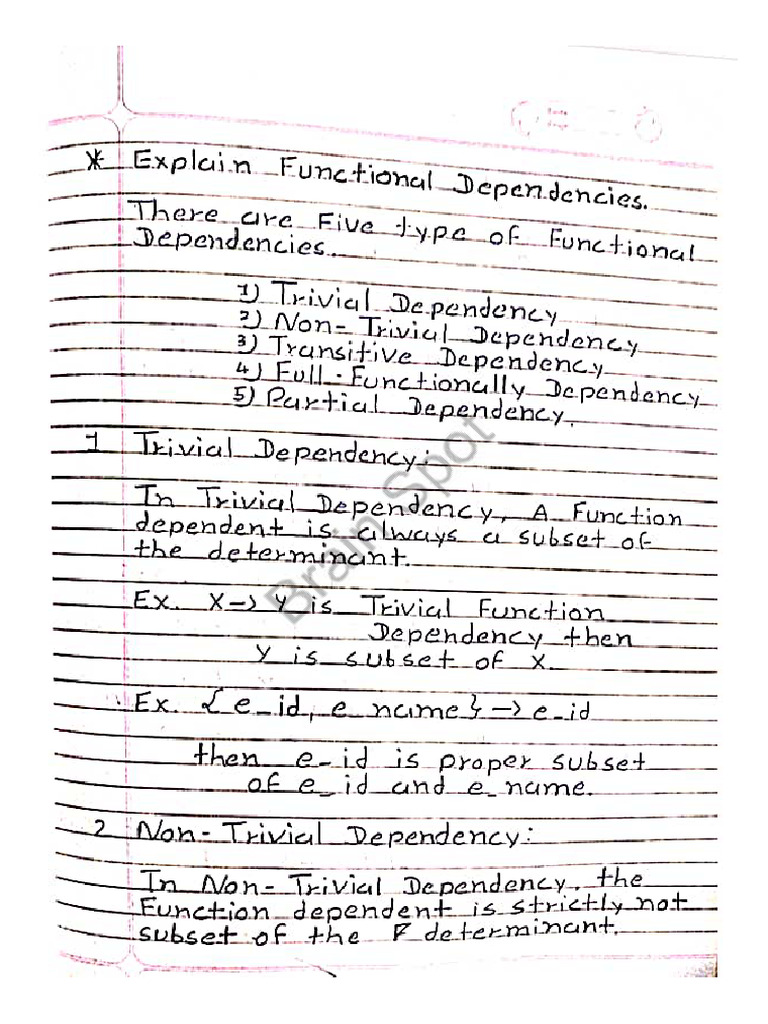 * Explain Functional Dependencies.
There are Five type of Functional
Dependencies.
1) Trivial Dependency
2) Non-Trivial Dependency
3) Transitive Dependency
4) Full-Functionally Dependency
5) Partial Dependency.
1 Trivial Dependency:
In Trivial Dependency, A Function
dependent is always a subset of
the determinant.
Ex. X→Y is Trivial Function
Dependency then
Y is subset of X.
Ex. {e_id, e_name}→e_id
then e_id is proper subset
of e_id and e_name.
2 Non-Trivial Dependency:
In Non-Trivial Dependency, the
Function dependent is strictly not
subset of the F determinant.
Brain Spot